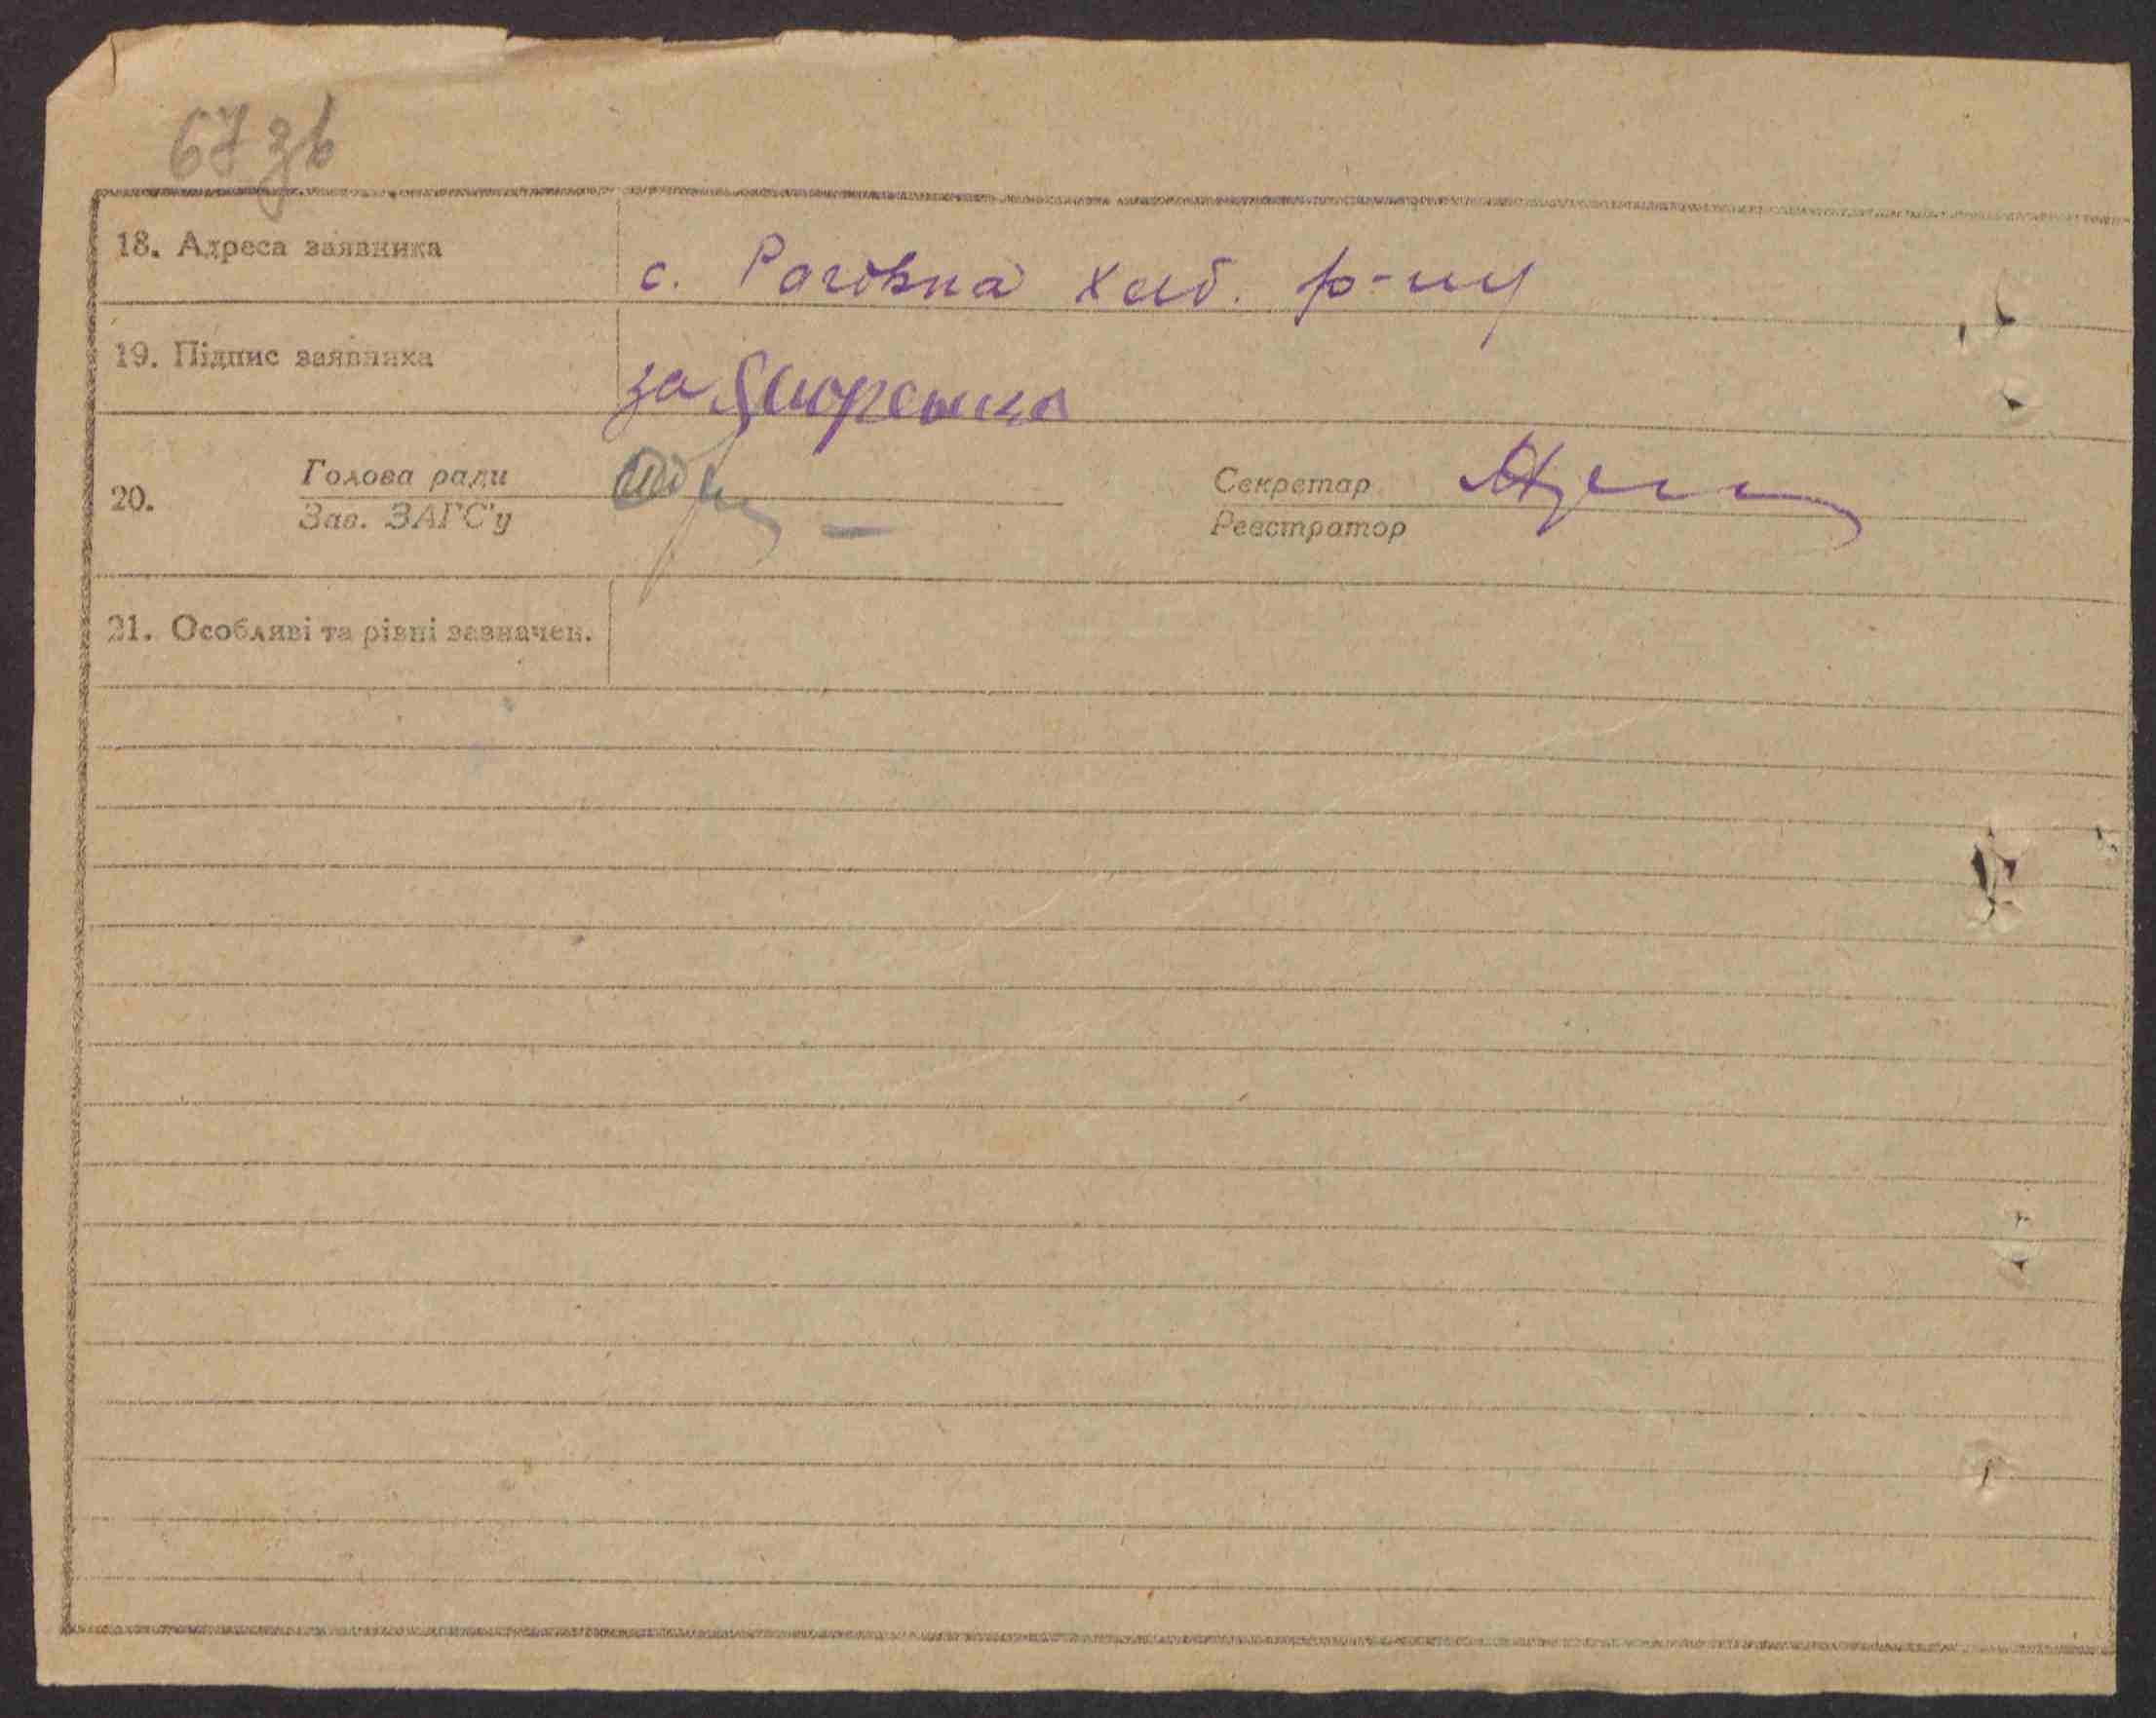 67 зв
18. Адреса заявника с. Роговка Хаб. р-ну
19. Підпис заявника за
20. Голова ради Секретар
Зав. ЗАГС'у Реєстратор
21. Особливі та рівні зазначен.